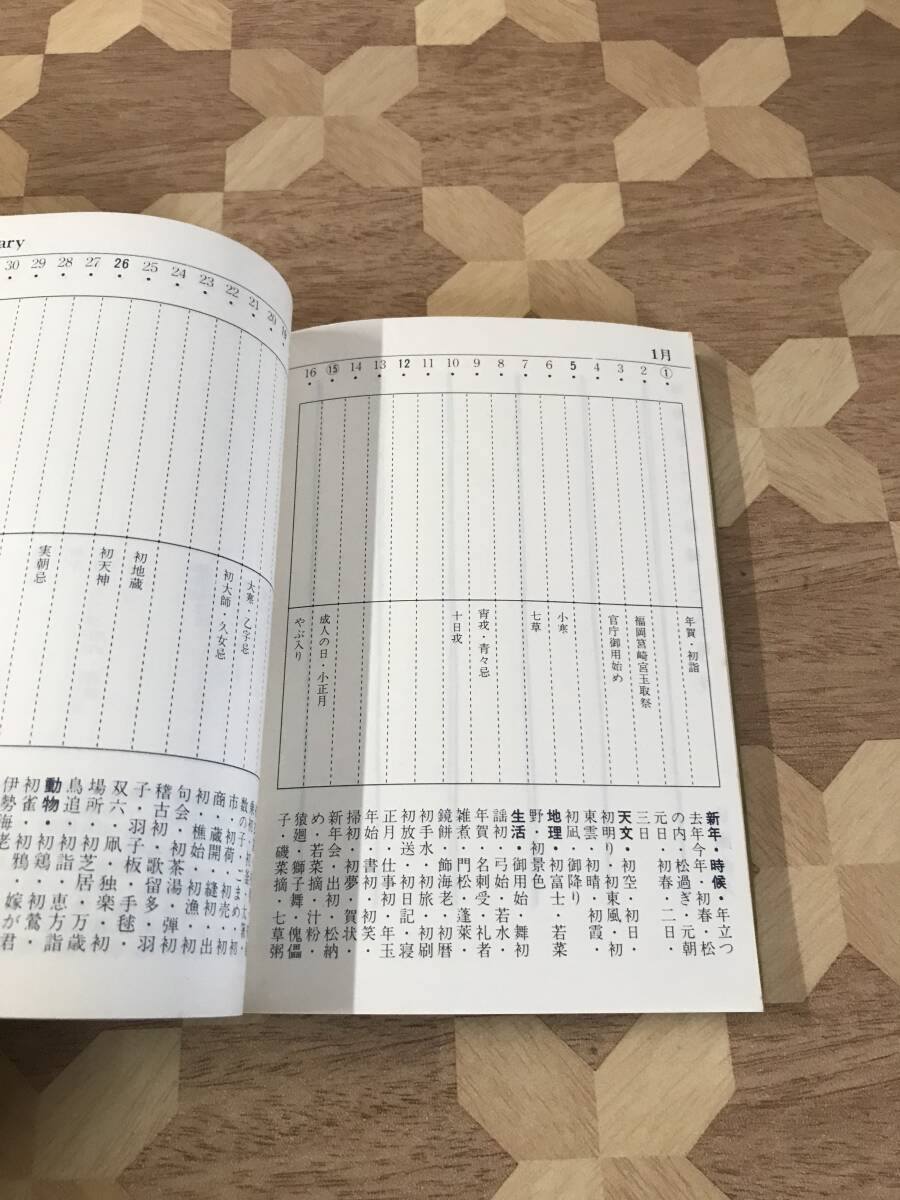 1月
①
2
3
4
5
6
7
8
9
10
11
12
13
14
⑮
16
年賀・初詣
福岡筥崎宮玉取祭
官庁御用始め
小寒
七草
宵戎・青々忌
十日戎
成人の日・小正月
やぶ入り
新年・時候・年立つ
去年今年・初春・松
の内・松過ぎ・元朝
元日・初春・二日・
三日
天文・初空・初日・
初明り・初東風・初
東雲・初晴・初霞・
初凪・御降り
地理・初富士・若菜
野・初景色
生活・御用始・舞初
謡初・弓始・若水・
年賀・名刺受・礼者
雑煮・門松・蓬萊・
鏡餅・飾海老・初暦
初手水・初旅・初刷
初放送・初日記・寝
正月・仕事初・年玉
年始・書初・初笑・
掃初・初夢・賀状・
新年会・出初・松納
め・若菜摘・汁粉・
猿廻・獅子舞・傀儡
子・磯菜摘・七草粥
ary
20
21
22
23
24
25
26
27
28
29
30
大寒・乙字忌
初大師・久女忌
初地蔵
初天神
実朝忌
数の子・ごまめ・初
市・初荷・初売・初
商・蔵開・縫初・出
初・樵始・初漁・初
句会・初茶湯・弾初
稽古初・歌留多・羽
子・羽子板・手毬・
双六・凧・独楽・初
場所・初芝居・万歳
鳥追・初詣・恵方詣
動物・初鶏・初鶯・
初雀・初鴉・嫁が君
伊勢海老